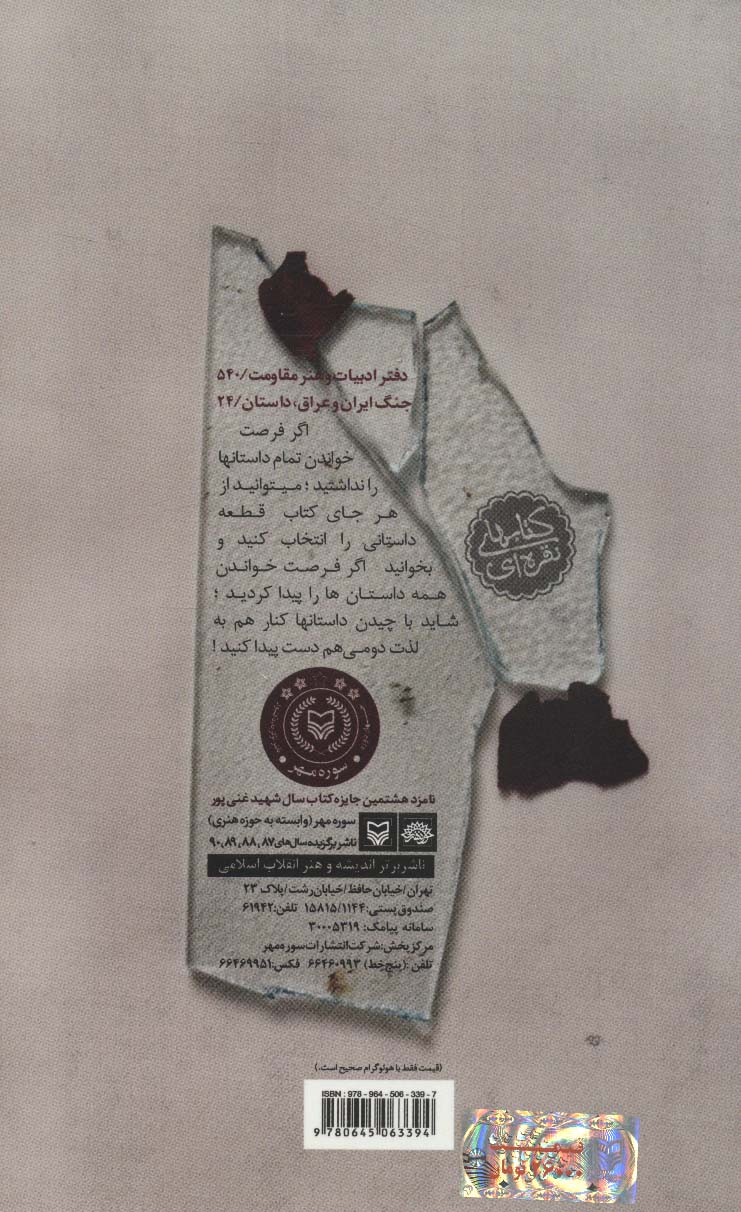 دفتر ادبیات و هنر مقاومت/۵۴۰
جنگ ایران و عراق، داستان/۲۴
اگر فرصت
خواندن تمام داستانها
را نداشتید؛ میتوانید از
هر جای کتاب قطعه
داستانی را انتخاب کنید و
بخوانید اگر فرصت خواندن
همه داستان ها را پیدا کردید؛
شاید با چیدن داستانها کنار هم به
لذت دومی هم دست پیدا کنید!
کتابهای
نقره‌ای
سوره مهر
نامزد هشتمین جایزه کتاب سال شهید غنی پور
سوره مهر (وابسته به حوزه هنری)
ناشر برگزیده سال‌های ۸۷، ۸۸، ۸۹، ۹۰
ناشر برتر اندیشه و هنر انقلاب اسلامی
تهران/خیابان حافظ/خیابان رشت/پلاک ۲۳
صندوق پستی: ۱۵۸۱۵/۱۱۴۴ تلفن: ۶۱۹۴۲
سامانه پیامک: ۳۰۰۰۵۳۱۹
مرکز پخش: شرکت انتشارات سوره مهر
تلفن: (پنج خط) ۶۶۴۶۰۹۹۳ فکس: ۶۶۴۶۹۹۵۱
(قیمت فقط با هولوگرام صحیح است.)
ISBN : 978 - 964 - 506 - 339 - 7
9 780645 063394
۲۶۰۰۰ تومان